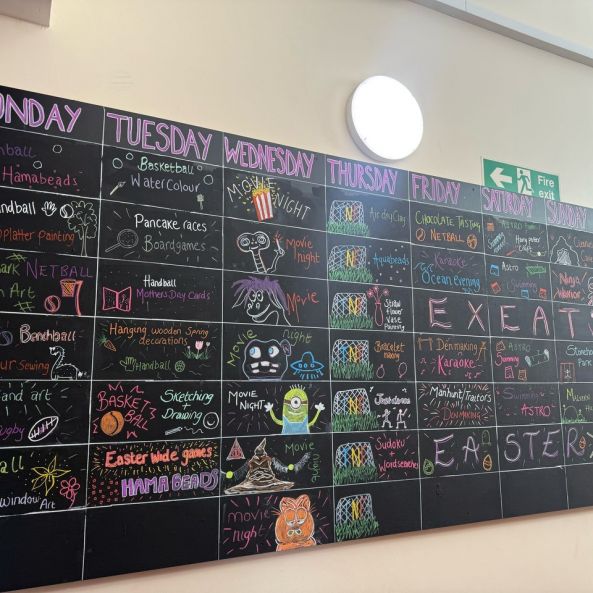 TUESDAY
WEDNESDAY
THURSDAY
FRIDAY
SATURDAY
SUNDAY
Fire
exit
Hamabeads
Basketball
Water Colour
MOVIE
NIGHT
Air dry Clay
CHOCOLATE TASTING
NETBALL
platter painting
Pancake races
Boardgames
Movie
night
Aquabeads
Karaoke
Ocean evening
Astro
Swimming
NETBALL
Art
Handball
Mothers Day Cards
Movie
Straw
flower
Vase
Painting
EXEATS
Ninja
Warrior
Benchball
Sewing
Hanging wooden Spring
decorations
Handball
Movie
night
Bracelet
making
Den making
Karaoke
ASTRO
art
Rugby
BASKET
BALL
Sketching
+
Drawing
MOVIE
NIGHT
Manhunt/Traitors
DEN MAKING
Swimming
ASTRO
window Art
Easter wide games
HAMA BEADS
Movie
night
Sudoku
+
Wordsearches
EASTER
movie
night